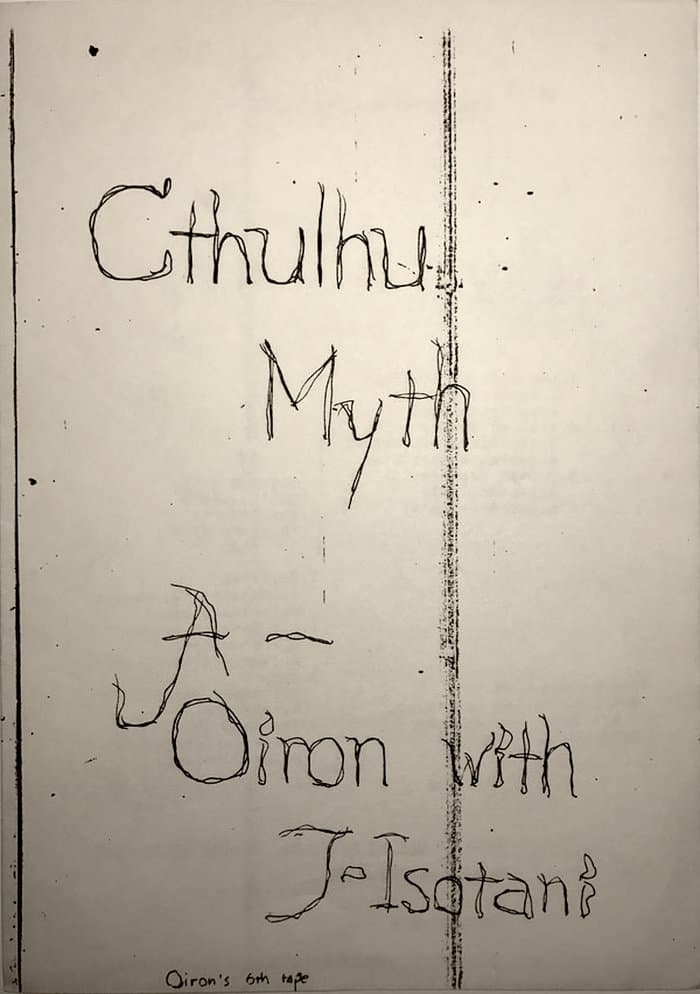 Cthulhu
Myth
A-
Oiron with
J-Isotani
Oiron's 6th tape